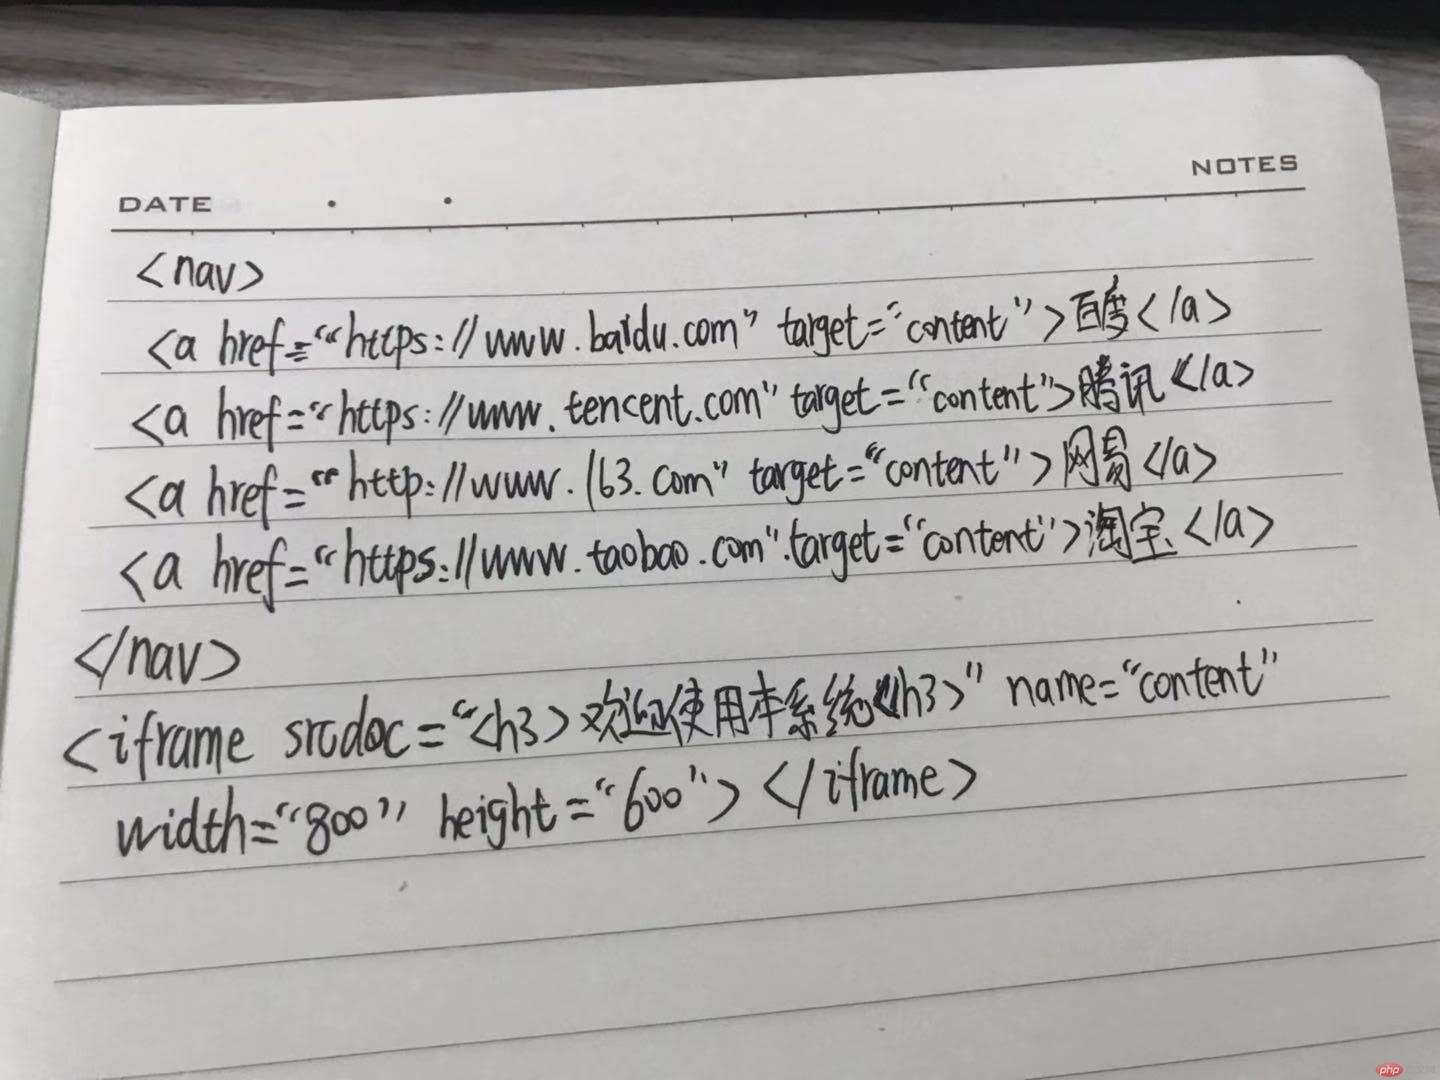 DATE . . NOTES
<nav>
<a href="https://www.baidu.com" target="content">百度</a>
<a href="https://www.tencent.com" target="content">腾讯</a>
<a href="http://www.163.com" target="content">网易</a>
<a href="https://www.taobao.com".target="content">淘宝</a>
</nav>
<iframe srcdoc="<h3>欢迎使用本系统</h3>" name="content"
width="800" height="600"></iframe>
php